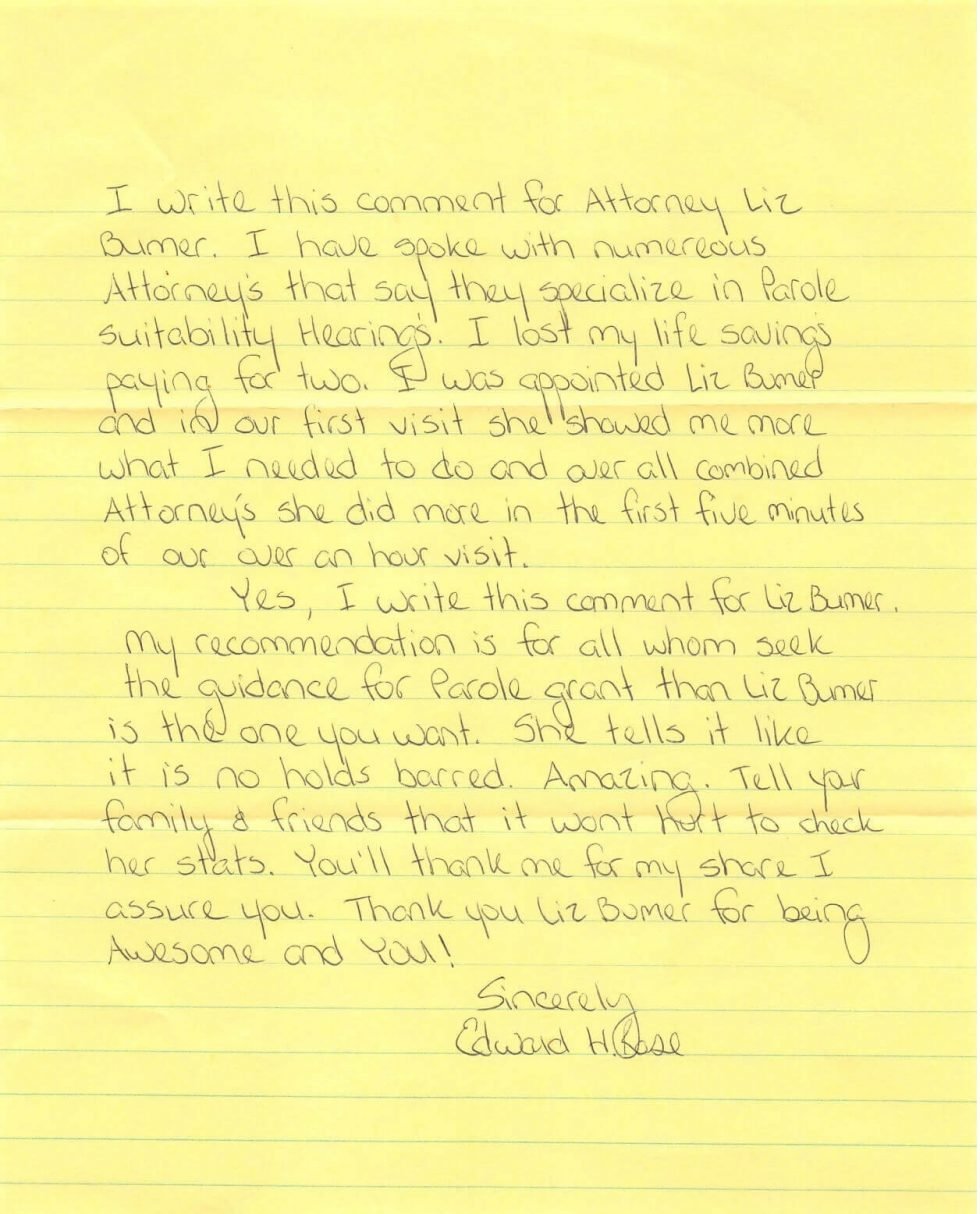 I write this comment for Attorney Liz
Bumer. I have spoke with numereous
Attorney's that say they specialize in Parole
suitability Hearing's. I lost my life saving's
paying for two. I was appointed Liz Bumer
and in our first visit she showed me more
what I needed to do and over all combined
Attorney's she did more in the first five minutes
of our over an hour visit.
Yes, I write this comment for Liz Bumer.
My recommendation is for all whom seek
the guidance for Parole grant than Liz Bumer
is the one you want. She tells it like
it is no holds barred. Amazing. Tell your
family & friends that it wont hurt to check
her stats. You'll thank me for my share I
assure you. Thank you Liz Bumer for being
Awesome and YOU!
Sincerely
Edward H.